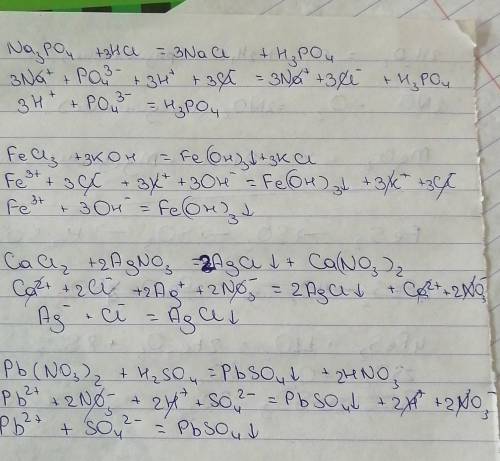 Na₃PO₄ +3HCl = 3NaCl + H₃PO₄
3Na⁺ + PO₄³⁻ + 3H⁺ + 3Cl⁻ = 3Na⁺ + 3Cl⁻ + H₃PO₄
3H⁺ + PO₄³⁻ = H₃PO₄
FeCl₃ +3KOH = Fe(OH)₃↓+3KCl
Fe³⁺ + 3Cl⁻ + 3K⁺ + 3OH⁻ = Fe(OH)₃↓ + 3K⁺ +3Cl⁻
Fe³⁺ + 3OH⁻ = Fe(OH)₃↓
CaCl₂ +2AgNO₃ =2AgCl↓ + Ca(NO₃)₂
Ca²⁺ +2Cl⁻ +2Ag⁺ +2NO₃⁻ = 2AgCl↓ + Ca²⁺+2NO₃⁻
Ag⁻ + Cl⁻ = AgCl↓
Pb(NO₃)₂ + H₂SO₄ = PbSO₄↓ +2HNO₃
Pb²⁺ + 2NO₃⁻ + 2H⁺ + SO₄²⁻ = PbSO₄↓ + 2H⁺ + 2NO₃⁻
Pb²⁺ + SO₄²⁻ = PbSO₄↓